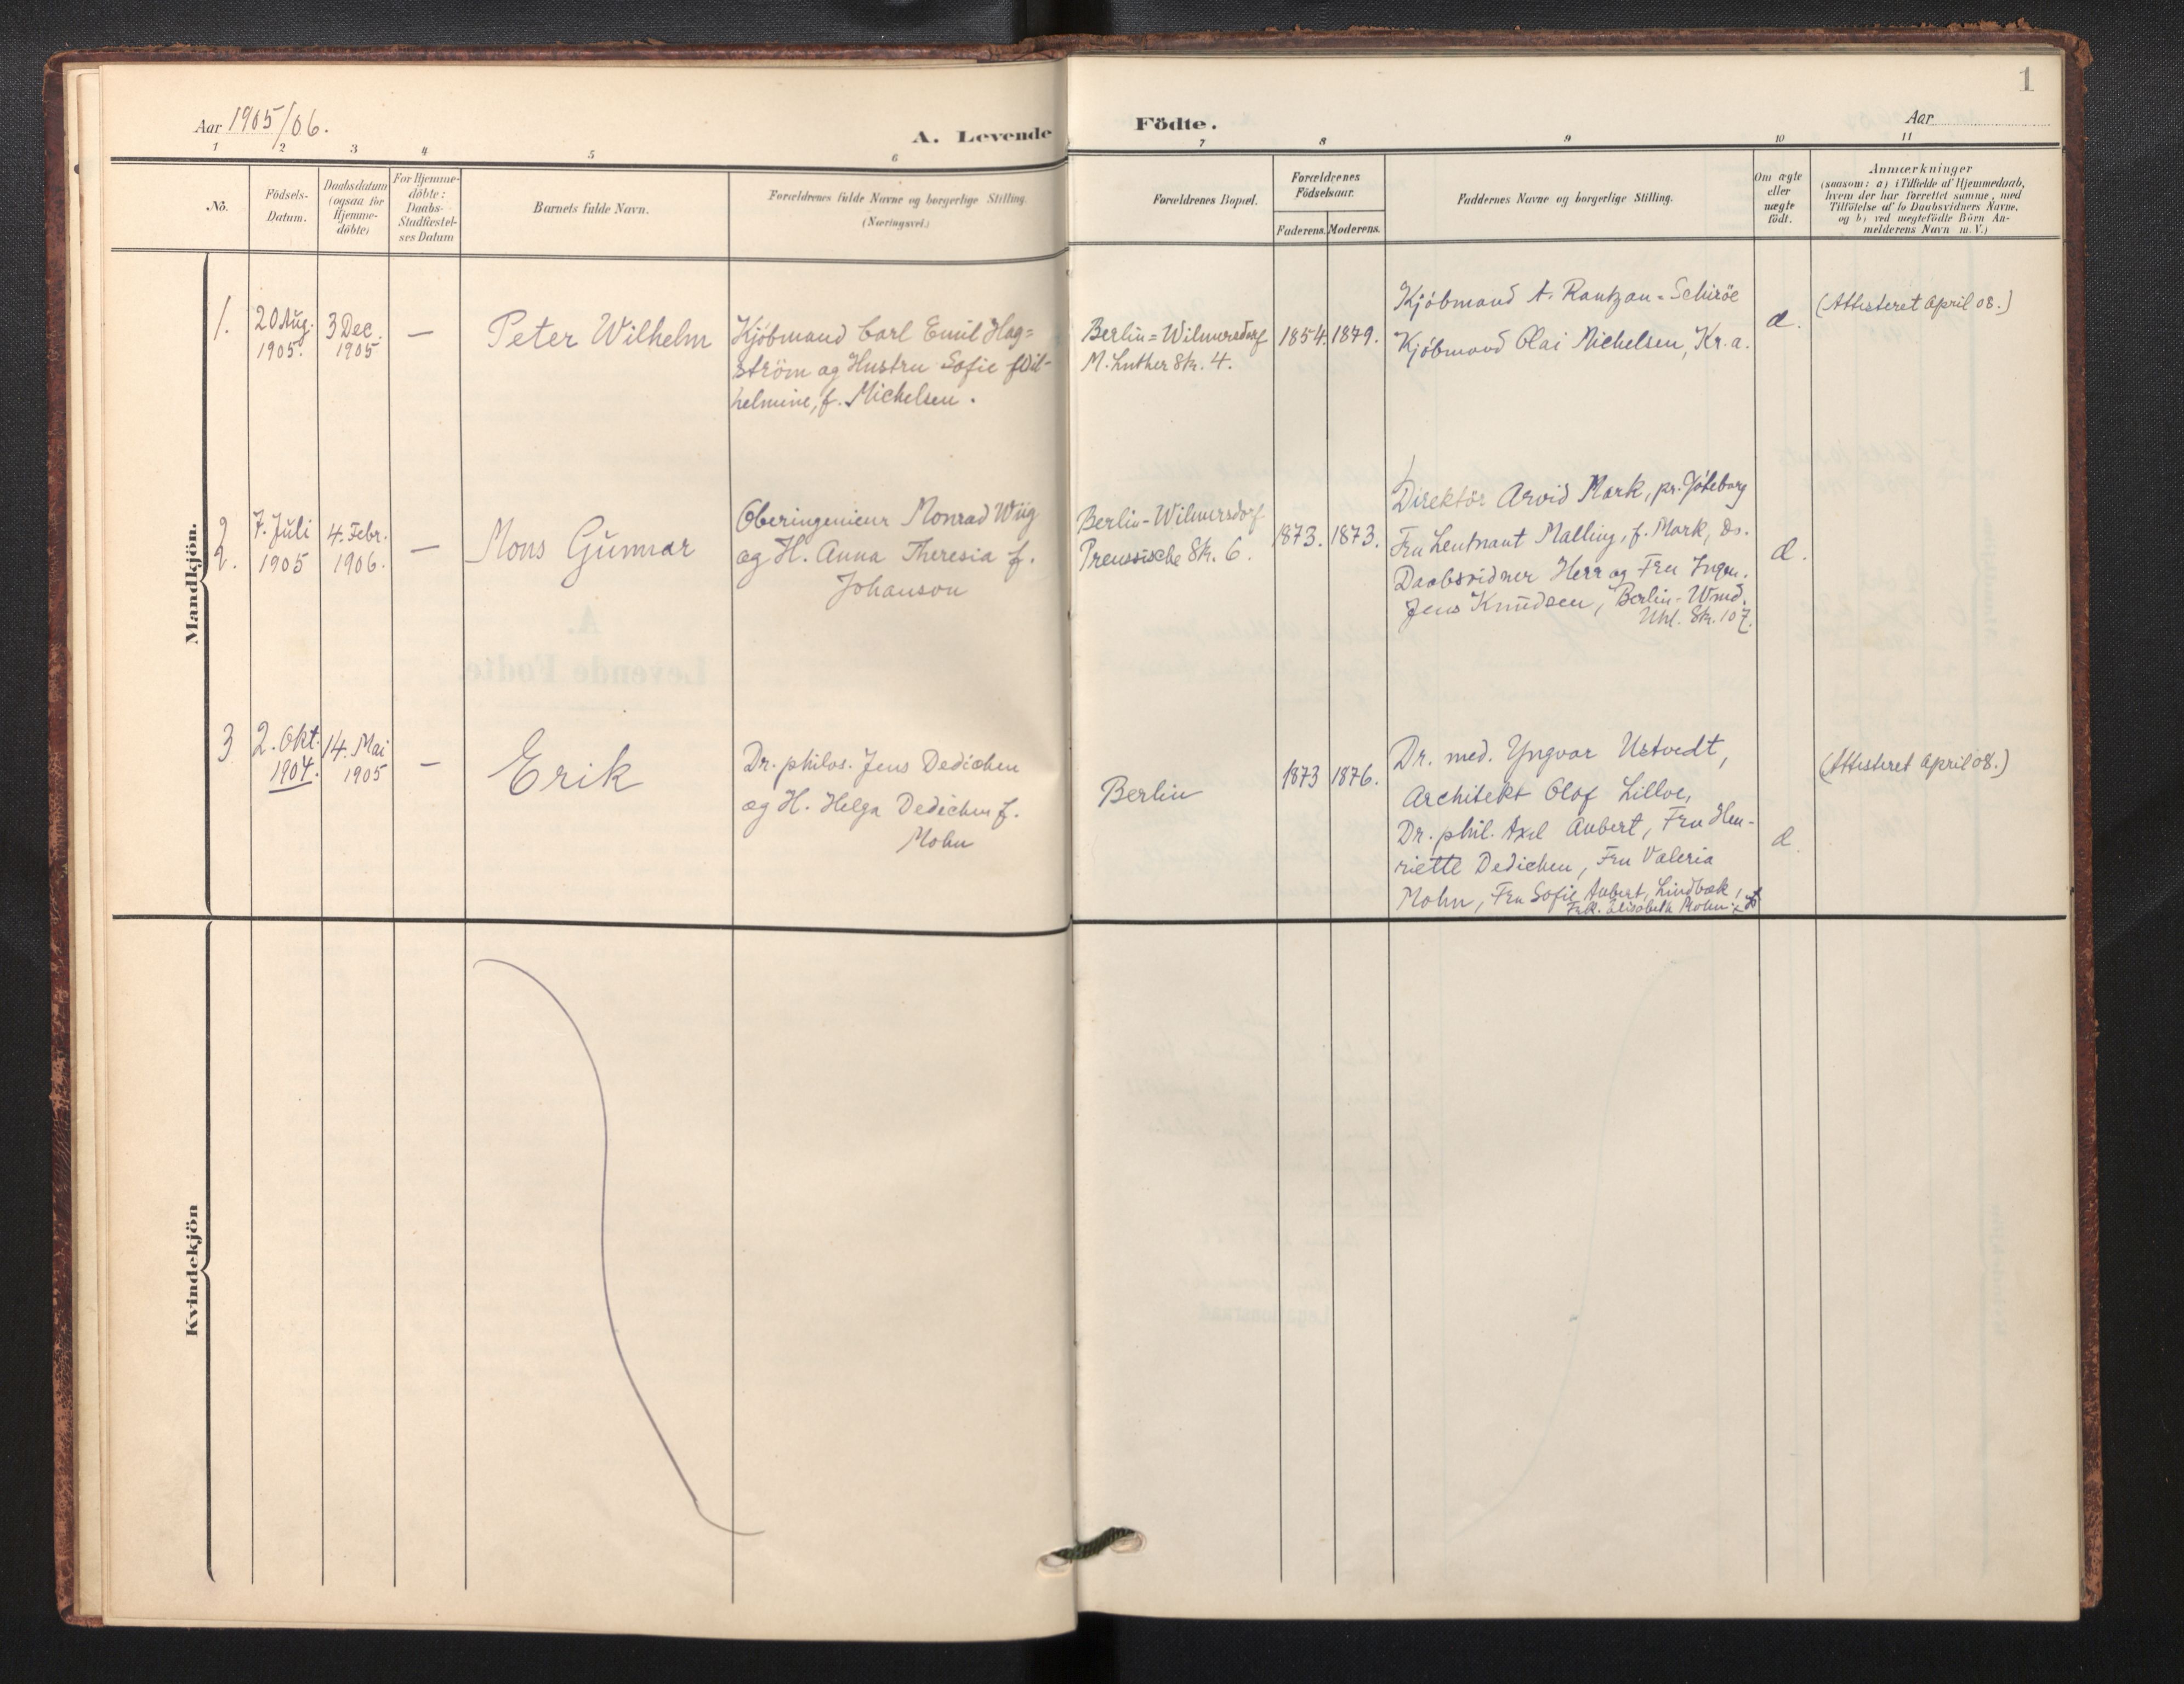 1
Aar 1905/06.
A. Levende Födte.
Aar
1 2 3 4 5 6 7 8 9 10 11
No.
Födsels-
Datum.
Daabsdatum
(ogsaa for
Hjemme-
döbte)
For Hjemme-
döbte:
Daabs-
Stadfæstel-
ses Datum
Barnets fulde Navn.
Forældrenes fulde Navne og borgerlige Stilling.
(Næringsvei.)
Forældrenes Bopæl.
Forældrenes
Födselsaar.
Faderens.
Moderens.
Faddernes Navne og borgerlige Stilling.
Om ægte
eller
uægte
födt.
Anmærkninger
(saasom: a) i Tilfælde af Hjemmedaab,
hvem der har forrettet samme, med
Tilföielse af to Daabsvidners Navne,
og b) ved uegtefödte Börn An-
melderens Navn m. V.)
Mandkjön.
1.
20 Aug.
1905.
3 Dec.
1905
—
Peter Wilhelm
Kjöbmand Carl Emil Hag=
ström og Hustru Sofie Wil-
helmine, f. Michelsen.
Berlin=Wilmersdorf
M. Luther Str. 4.
1854.
1879.
Kjöbmand A. Rantzau-Schiröe
Kjöbmand Olai Michelsen, Kr.a.
(Attesteret April 08.)
2.
7. Juli
1905
4. Febr.
1906.
—
Mons Gunnar
Oberingenieur Monrad Wiig
og H. Anna Theresia f.
Johanson
Berlin-Wilmersdorf
Preussische Str. 6.
1873.
1873.
Direktör Arvid Mark, pr. Göteborg
Fru Leutnant Malling, f. Mark, Do.
Daabsvidner Herr og Fru Ingen.
Jens Knudsen, Berlin-Wmd.
Uhl. Str. 107.
3
2. Okt.
1904.
14. Mai
1905
—
Erik
Dr. philos. Jens Dedichen
og H. Helga Dedichen f.
Mohn
Berlin
1873
1876.
Dr. med. Yngvar Ustvedt,
Architekt Olof Lilloe,
Dr. phil. Axel Aubert, Fru Hen-
riette Dedichen, Fru Valeria
Mohn, Fru Sofie Aubert, Lindbæk,
Frk. Elisabeth Mohn.
(Attesteret April 08.)
Kvindekjön